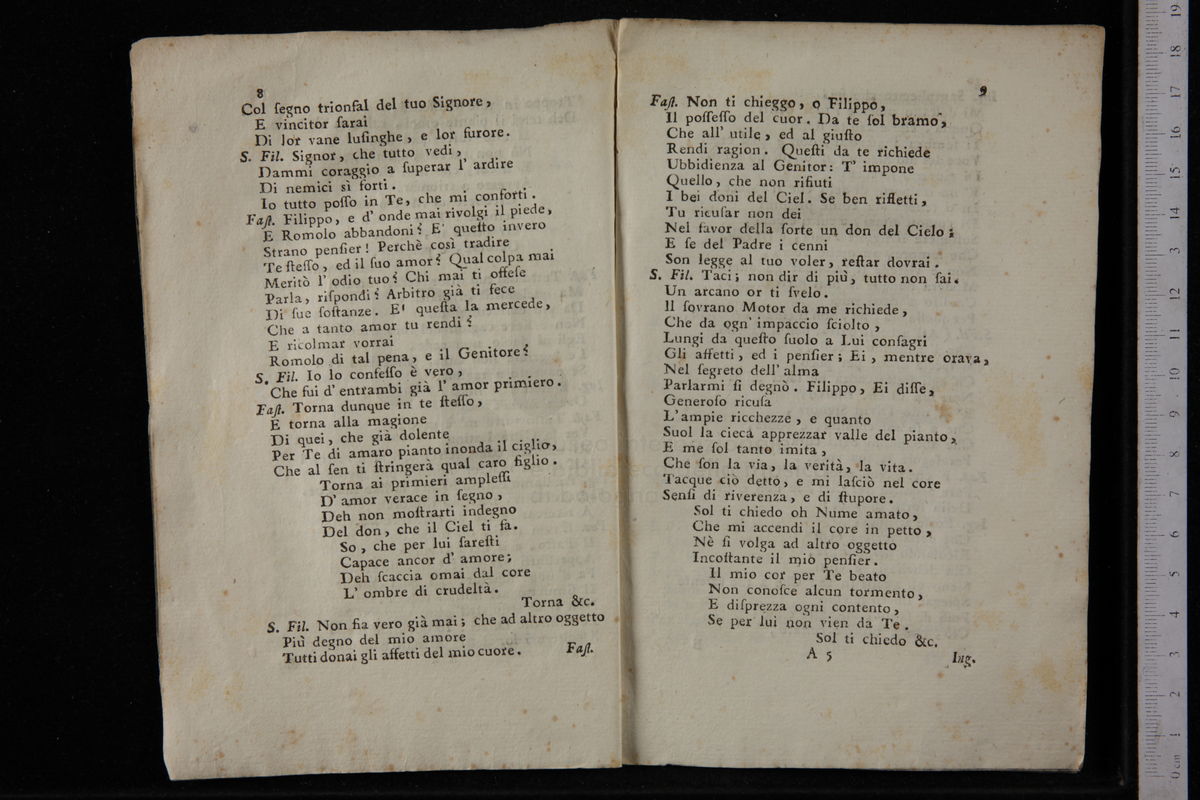 8
Col ſegno trionfal del tuo Signore,
E vincitor ſarai
Di lor vane luſinghe, e lor furore.
S. Fil. Signor, che tutto vedi,
Dammi coraggio a ſuperar l' ardire
Di nemici sì forti.
Io tutto poſſo in Te, che mi conforti.
Faſt. Filippo, e d' onde mai rivolgi il piede,
E Romolo abbandoni? E' queſto invero
Strano penſier! Perchè così tradire
Te ſteſſo, ed il ſuo amor? Qual colpa mai
Meritò l' odio tuo? Chi mai ti offeſe
Parla, riſpondi? Arbitro già ti fece
Di ſue ſoſtanze. E' queſta la mercede,
Che a tanto amor tu rendi?
E ricolmar vorrai
Romolo di tal pena, e il Genitore?
S. Fil. Io lo confeſſo è vero,
Che fui d' entrambi già l' amor primiero.
Faſt. Torna dunque in te ſteſſo,
E torna alla magione
Di quei, che già dolente
Per Te di amaro pianto inonda il ciglio,
Che al ſen ti ſtringerà qual caro figlio.
Torna ai primieri ampleſſi
D' amor verace in ſegno,
Deh non moſtrarti indegno
Del don, che il Ciel ti fa.
So, che per lui ſareſti
Capace ancor d' amore;
Deh ſcaccia omai dal core
L' ombre di crudeltà.
Torna &c.
S. Fil. Non fia vero già mai; che ad altro oggetto
Più degno del mio amore
Tutti donai gli affetti del mio cuore.
Faſt.
9
Faſt. Non ti chieggo, o Filippo,
Il poſſeſſo del cuor. Da te ſol bramo,
Che all' utile, ed al giuſto
Rendi ragion. Queſti da te richiede
Ubbidienza al Genitor: T' impone
Quello, che non rifiuti
I bei doni del Ciel. Se ben rifletti,
Tu ricuſar non dei
Nel favor della ſorte un don del Cielo;
E ſe del Padre i cenni
Son legge al tuo voler, reſtar dovrai.
S. Fil. Taci; non dir di più, tutto non ſai.
Un arcano or ti ſvelo.
Il ſovrano Motor da me richiede,
Che da ogn' impaccio ſciolto,
Lungi da queſto ſuolo a Lui conſagri
Gli affetti, ed i penſier; Ei, mentre orava,
Nel ſegreto dell' alma
Parlarmi ſi degnò. Filippo, Ei diſſe,
Generoſo ricuſa
L'ampie ricchezze, e quanto
Suol la cieca apprezzar valle del pianto,
E me ſol tanto imita,
Che ſon la via, la verità, la vita.
Tacque ciò detto, e mi laſciò nel core
Senſi di riverenza, e di ſtupore.
Sol ti chiedo oh Nume amato,
Che mi accendi il core in petto,
Nè ſi volga ad altro oggetto
Incoſtante il mio penſier.
Il mio cor per Te beato
Non conoſce alcun tormento,
E diſprezza ogni contento,
Se per lui non vien da Te.
Sol ti chiedo &c.
A 5
Ing.